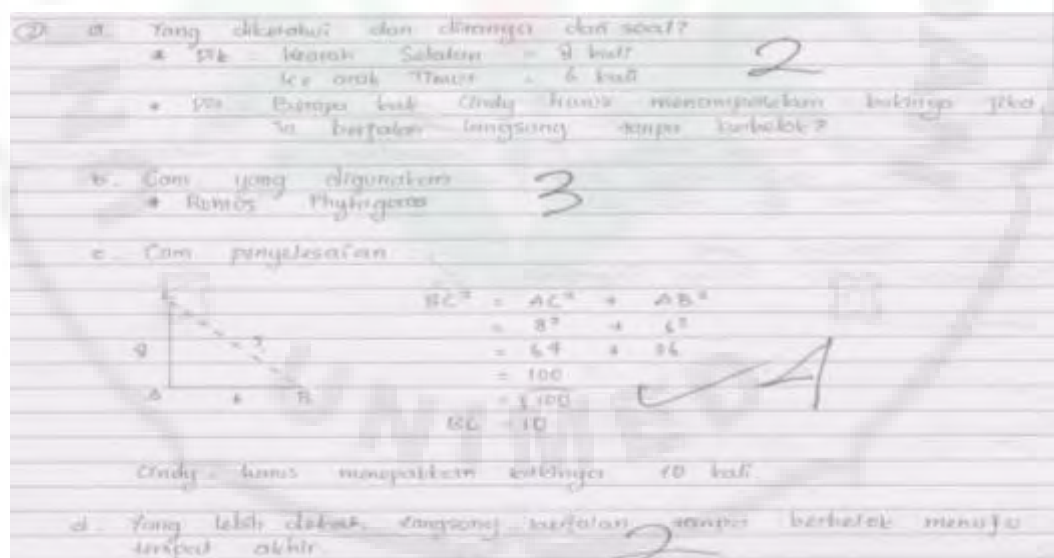 ② a. Yang diketahui dan ditanya dari soal?
* Dik : Kearah Selatan = 8 kali
Ke arah Timur = 6 kali
2
* Dit : Berapa kali Cindy harus menempatkan kakinya jika
ia berjalan langsung tanpa berbelok?
b. Cara yang digunakan
* Rumus Phytagoras
3
c. Cara penyelesaian
8
?
A 6 B
BC² = AC² + AB²
= 8² + 6²
= 64 + 36
= 100
= √100
BC = 10
4
Cindy harus menepakkan kakinya 10 kali.
d. Yang lebih dekat, langsung berjalan tanpa berbelok menuju
tempat akhir.
2
UNIMED